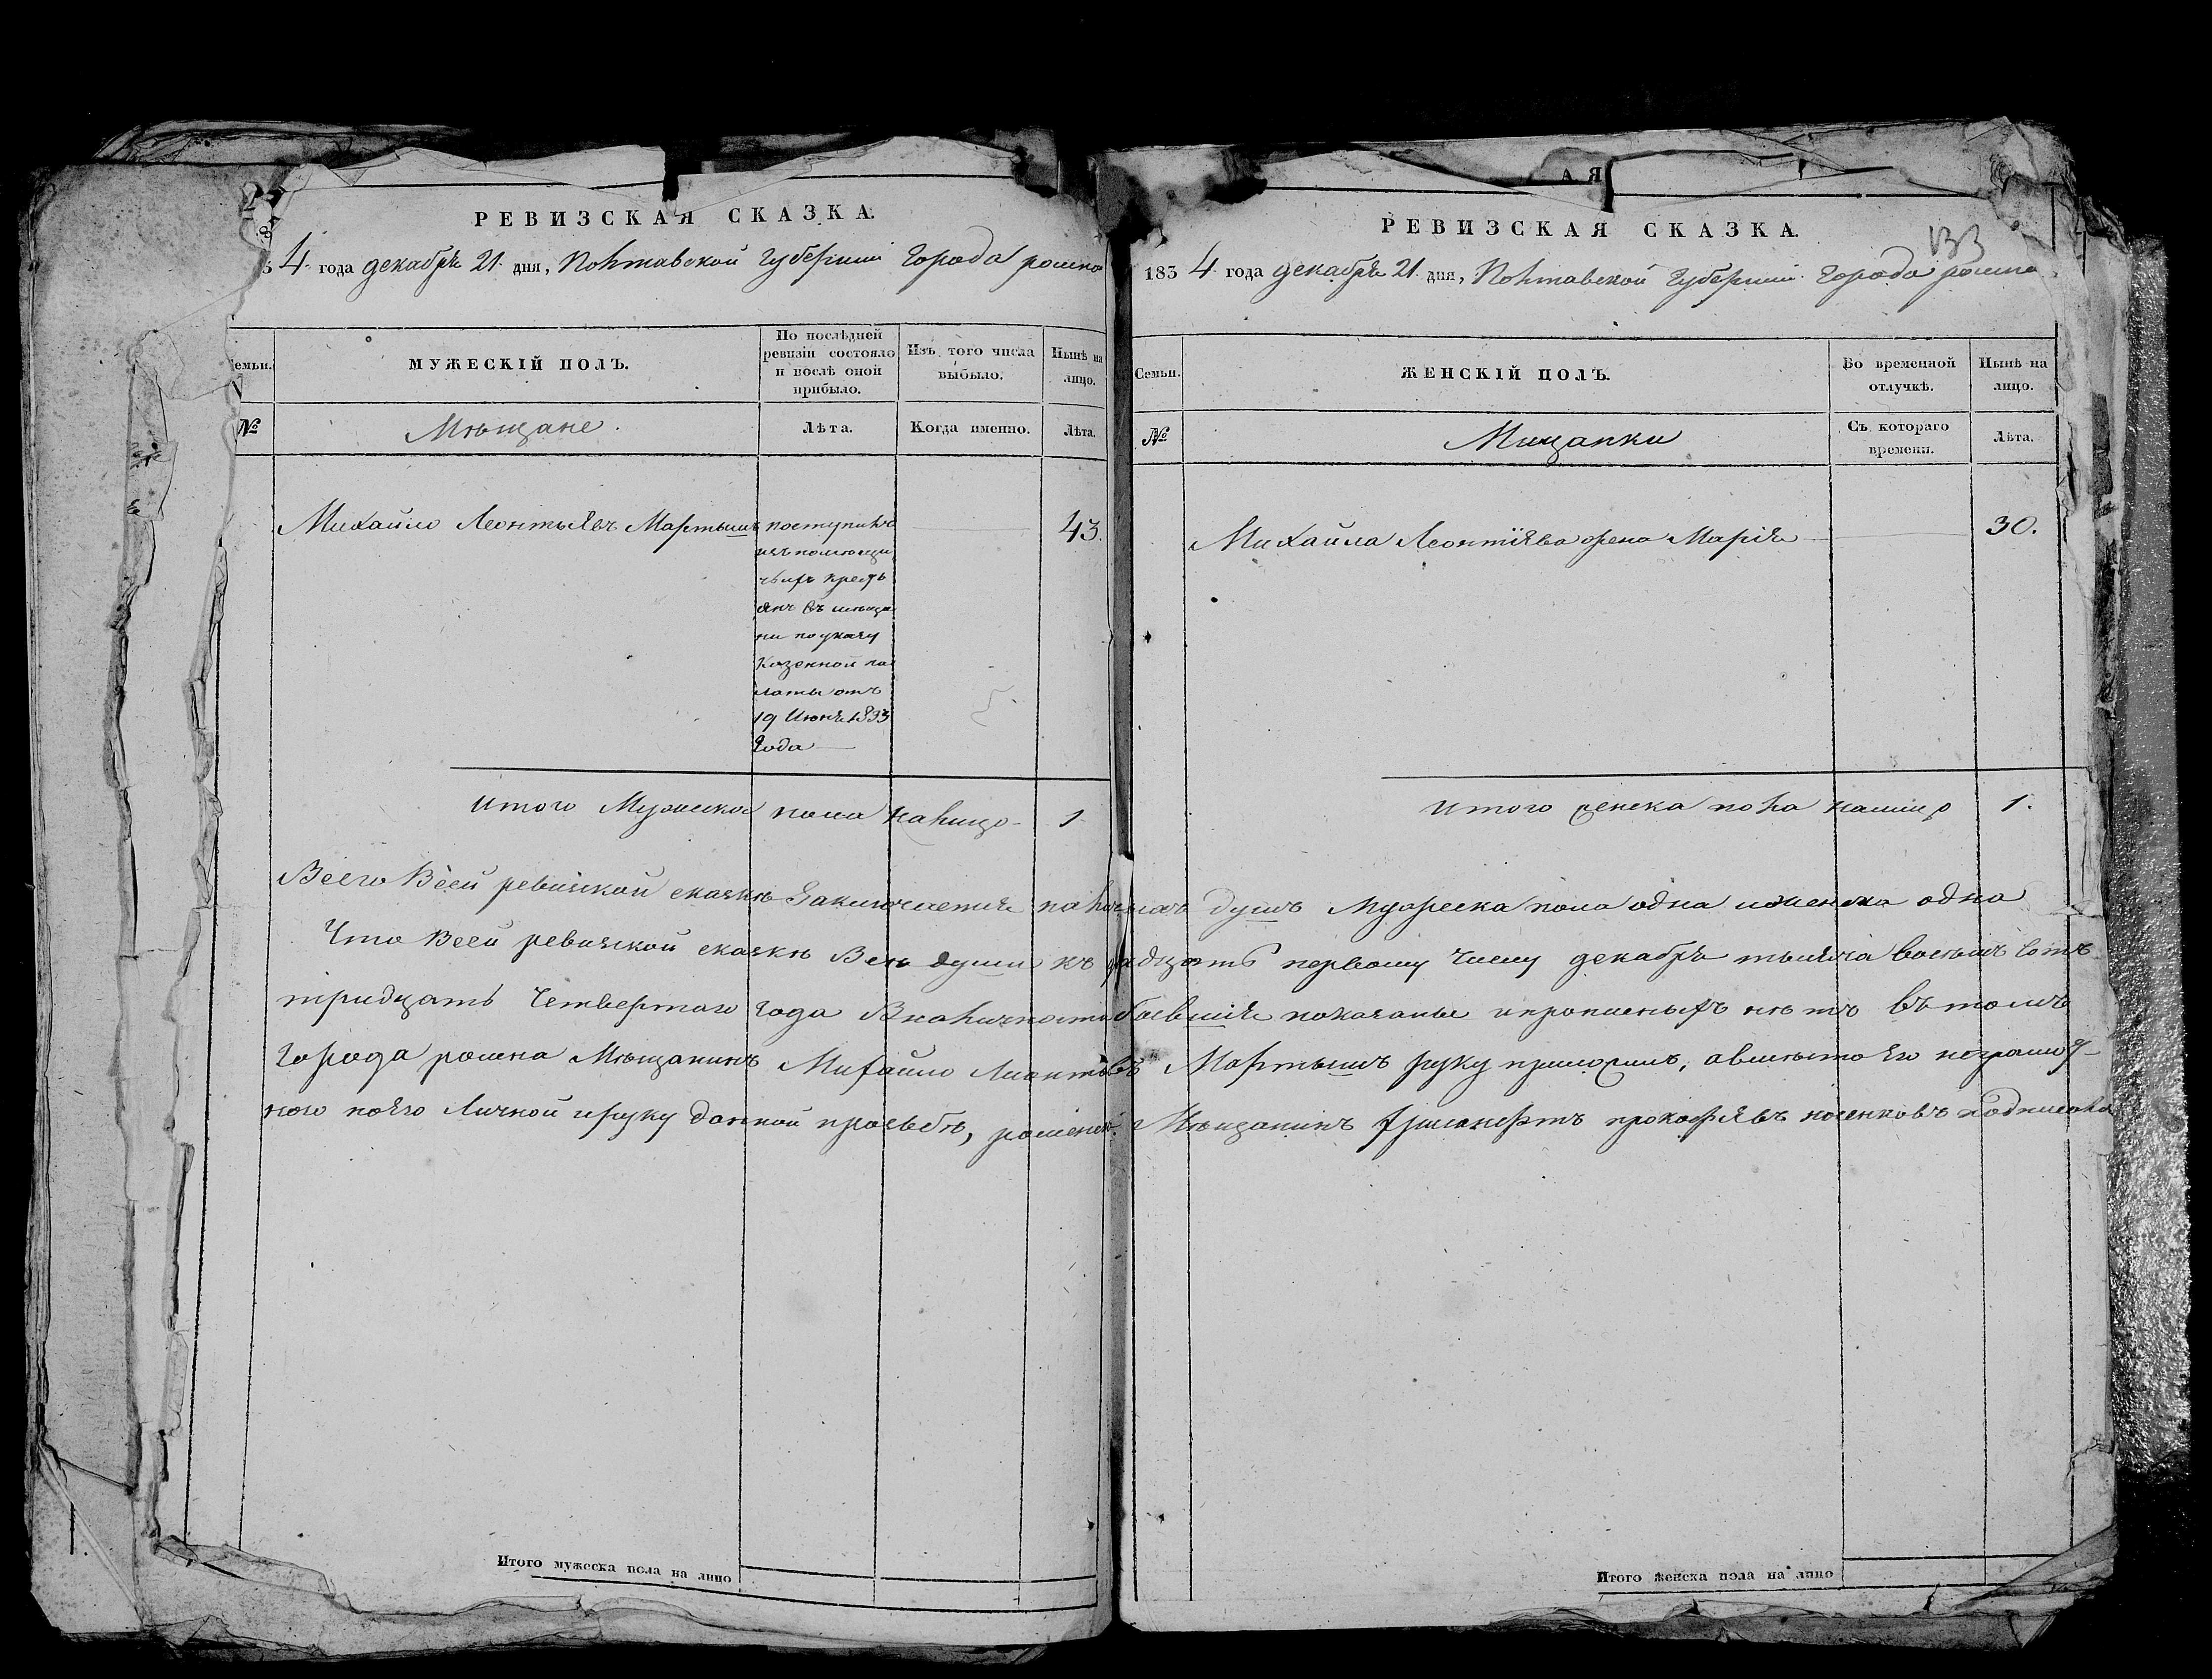 РЕВИЗСКАЯ СКАЗКА.
4 года декабря 21 дня, Полтавской губернии города ромна
Семьи.
МУЖЕСКІЙ ПОЛЪ.
По послѣдней ревизіи состояло и послѣ оной прибыло.
Изъ того числа выбыло.
Нынѣ на лицо.
№
Мѣщане.
Лѣта.
Когда именно.
Лѣта.
Михайло Леонтьевъ Мартышъ
поступилъ
изъ помѣщи
чьихъ кресть
янъ въ мѣща
ни по указу
Казенной па
латы отъ
19 Июня 1833
года
43.
итого Мужеска пола налицо 1
АЯ
РЕВИЗСКАЯ СКАЗКА.
133
1834 года декабря 21 дня, Полтавской губернии города ромна
Семьи.
ЖЕНСКІЙ ПОЛЪ.
Во временной отлучкѣ.
Нынѣ на лицо.
№
Мищанки
Съ котораго времени.
Лѣта.
Михайла Леонтіева жена Марія
30.
итого женска пола налицо 1.
Всего Всей ревизской сказкѣ Заключается наличныхъ душъ Мужеска пола одна и женска одна
Что Всей ревизской сказкѣ Всѣ души къ двадцать первому числу декабря тысяча восемъ сотъ
тридцать четвертаго года Вналичности бывшія показаны ипрописныхъ нѣтъ въ томъ
города ромна Мѣщанинъ Михайло Леонтьевъ Мартышъ руку приложилъ, авмѣсто его неграмот-
ного поего Личной ируку данной прозьбѣ, роменск. Мѣщанинъ прокофьевъ подписалъ
Итого мужеска пола на лицо
Итого женска пола на лицо